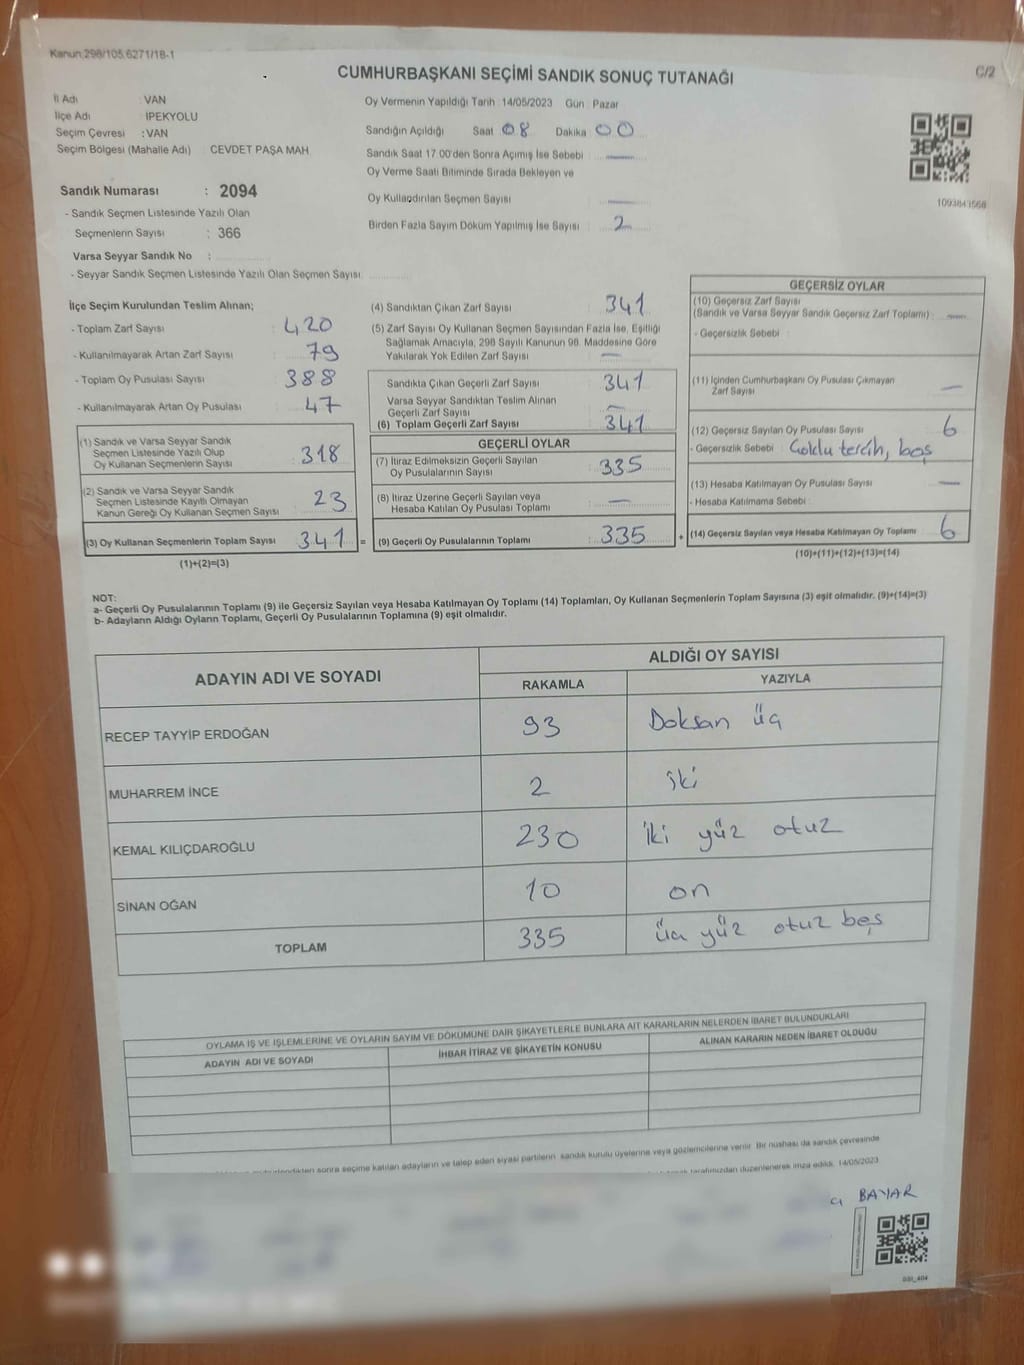 Kanun:298/105,6271/18-1
CUMHURBAŞKANI SEÇİMİ SANDIK SONUÇ TUTANAĞI
C/2
İl Adı : VAN
İlçe Adı : İPEKYOLU
Seçim Çevresi : VAN
Seçim Bölgesi (Mahalle Adı) : CEVDET PAŞA MAH.
Sandık Numarası : 2094
- Sandık Seçmen Listesinde Yazılı Olan
Seçmenlerin Sayısı : 366
Varsa Seyyar Sandık No :
- Seyyar Sandık Seçmen Listesinde Yazılı Olan Seçmen Sayısı:
Oy Vermenin Yapıldığı Tarih : 14/05/2023 Gün : Pazar
Sandığın Açıldığı Saat 08 Dakika 00
Sandık Saat 17:00'den Sonra Açımış İse Sebebi : —
Oy Verme Saati Bitiminde Sırada Bekleyen ve
Oy Kullandırılan Seçmen Sayısı : —
Birden Fazla Sayım Döküm Yapılmış İse Sayısı : 2
1093843568
İlçe Seçim Kurulundan Teslim Alınan;
- Toplam Zarf Sayısı : 420
- Kullanılmayarak Artan Zarf Sayısı : 79
- Toplam Oy Pusulası Sayısı : 388
- Kullanılmayarak Artan Oy Pusulası : 47
(1) Sandık ve Varsa Seyyar Sandık
Seçmen Listesinde Yazılı Olup
Oy Kullanan Seçmenlerin Sayısı : 318
(2) Sandık ve Varsa Seyyar Sandık
Seçmen Listesinde Kayıtlı Olmayan
Kanun Gereği Oy Kullanan Seçmen Sayısı : 23
(3) Oy Kullanan Seçmenlerin Toplam Sayısı : 341 =
(1)+(2)=(3)
(4) Sandıktan Çıkan Zarf Sayısı : 341
(5) Zarf Sayısı Oy Kullanan Seçmen Sayısından Fazla İse, Eşitliği
Sağlamak Amacıyla, 298 Sayılı Kanunun 98. Maddesine Göre
Yakılarak Yok Edilen Zarf Sayısı : —
Sandıkta Çıkan Geçerli Zarf Sayısı : 341
Varsa Seyyar Sandıktan Teslim Alınan
Geçerli Zarf Sayısı : —
(6) Toplam Geçerli Zarf Sayısı : 341
GEÇERLİ OYLAR
(7) İtiraz Edilmeksizin Geçerli Sayılan
Oy Pusulalarının Sayısı : 335
(8) İtiraz Üzerine Geçerli Sayılan veya
Hesaba Katılan Oy Pusulası Toplamı : —
(9) Geçerli Oy Pusulalarının Toplamı : 335 +
GEÇERSİZ OYLAR
(10) Geçersiz Zarf Sayısı
(Sandık ve Varsa Seyyar Sandık Geçersiz Zarf Toplamı) : —
- Geçersizlik Sebebi :
(11) İçinden Cumhurbaşkanı Oy Pusulası Çıkmayan
Zarf Sayısı : —
(12) Geçersiz Sayılan Oy Pusulası Sayısı : 6
- Geçersizlik Sebebi : Çoklu tercih, boş
(13) Hesaba Katılmayan Oy Pusulası Sayısı : —
- Hesaba Katılmama Sebebi :
(14) Geçersiz Sayılan veya Hesaba Katılmayan Oy Toplamı : 6
(10)+(11)+(12)+(13)=(14)
NOT:
a- Geçerli Oy Pusulalarının Toplamı (9) ile Geçersiz Sayılan veya Hesaba Katılmayan Oy Toplamı (14) Toplamları, Oy Kullanan Seçmenlerin Toplam Sayısına (3) eşit olmalıdır. (9)+(14)=(3)
b- Adayların Aldığı Oyların Toplamı, Geçerli Oy Pusulalarının Toplamına (9) eşit olmalıdır.
ADAYIN ADI VE SOYADI ALDIĞI OY SAYISI
RAKAMLA YAZIYLA
RECEP TAYYİP ERDOĞAN 93 Doksan üç
MUHARREM İNCE 2 iki
KEMAL KILIÇDAROĞLU 230 iki yüz otuz
SİNAN OĞAN 10 on
TOPLAM 335 üç yüz otuz beş
OYLAMA İŞ VE İŞLEMLERİNE VE OYLARIN SAYIM VE DÖKÜMÜNE DAİR ŞİKAYETLERLE BUNLARA AİT KARARLARIN NELERDEN İBARET BULUNDUKLARI
ADAYIN ADI VE SOYADI İHBAR İTİRAZ VE ŞİKAYETİN KONUSU ALINAN KARARIN NEDEN İBARET OLDUĞU
sonra seçime katılan adayların ve talep eden siyasi partilerin sandık kurulu üyelerine veya gözlemcilerine verilir. Bir nüshası da sandık çevresinde
tarafımızdan düzenlenerek imza edildi. 14/05/2023
BAYAR